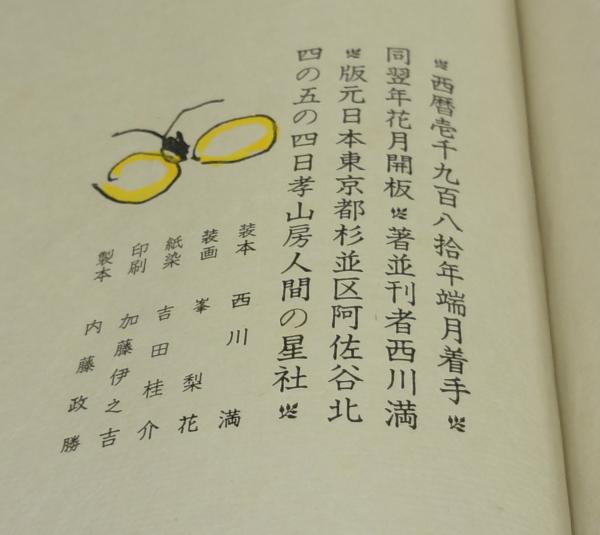 西暦壱千九百八拾年端月着手
同翌年花月開板 著並刊者西川満
版元日本東京都杉並区阿佐谷北
四の五の四日孝山房人間の星社
装本 西川 満
装画 峯 梨花
紙染 吉田桂介
印刷 加藤伊之吉
製本 内藤政勝